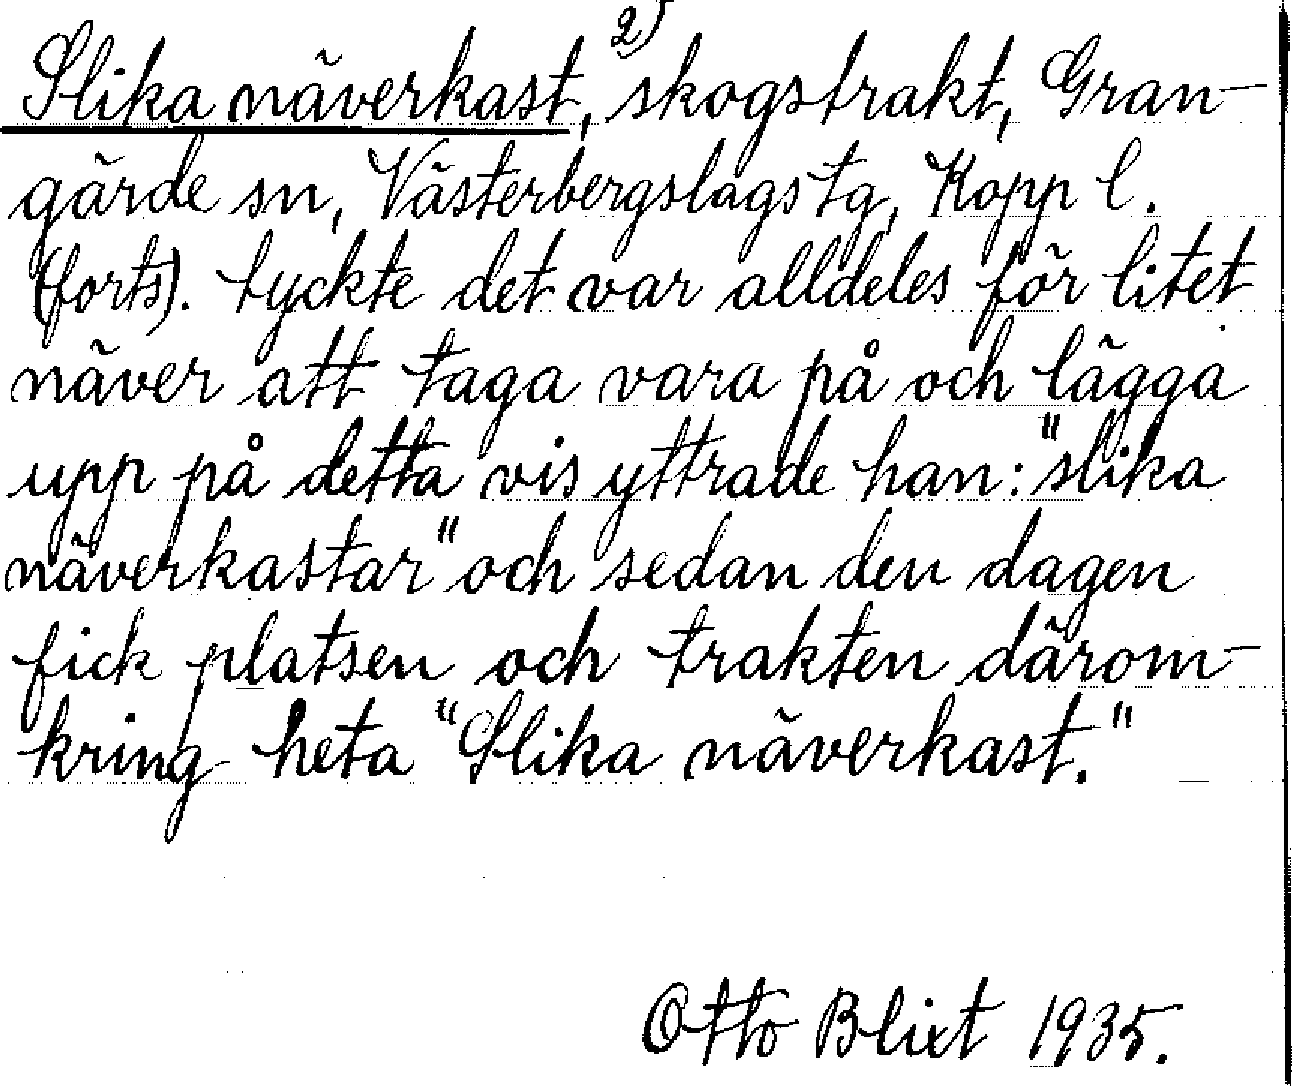 2)
Slika näverkast, skogstrakt, Gran-
gärde sn, Västerbergslags tg, Kopp l.
(forts). tyckte det var alldeles för litet
näver att taga vara på och lägga
upp på detta vis yttrade han: "slika
näverkastar" och sedan den dagen
fick platsen och trakten därom-
kring heta "Slika näverkast."
Otto Blixt 1935.